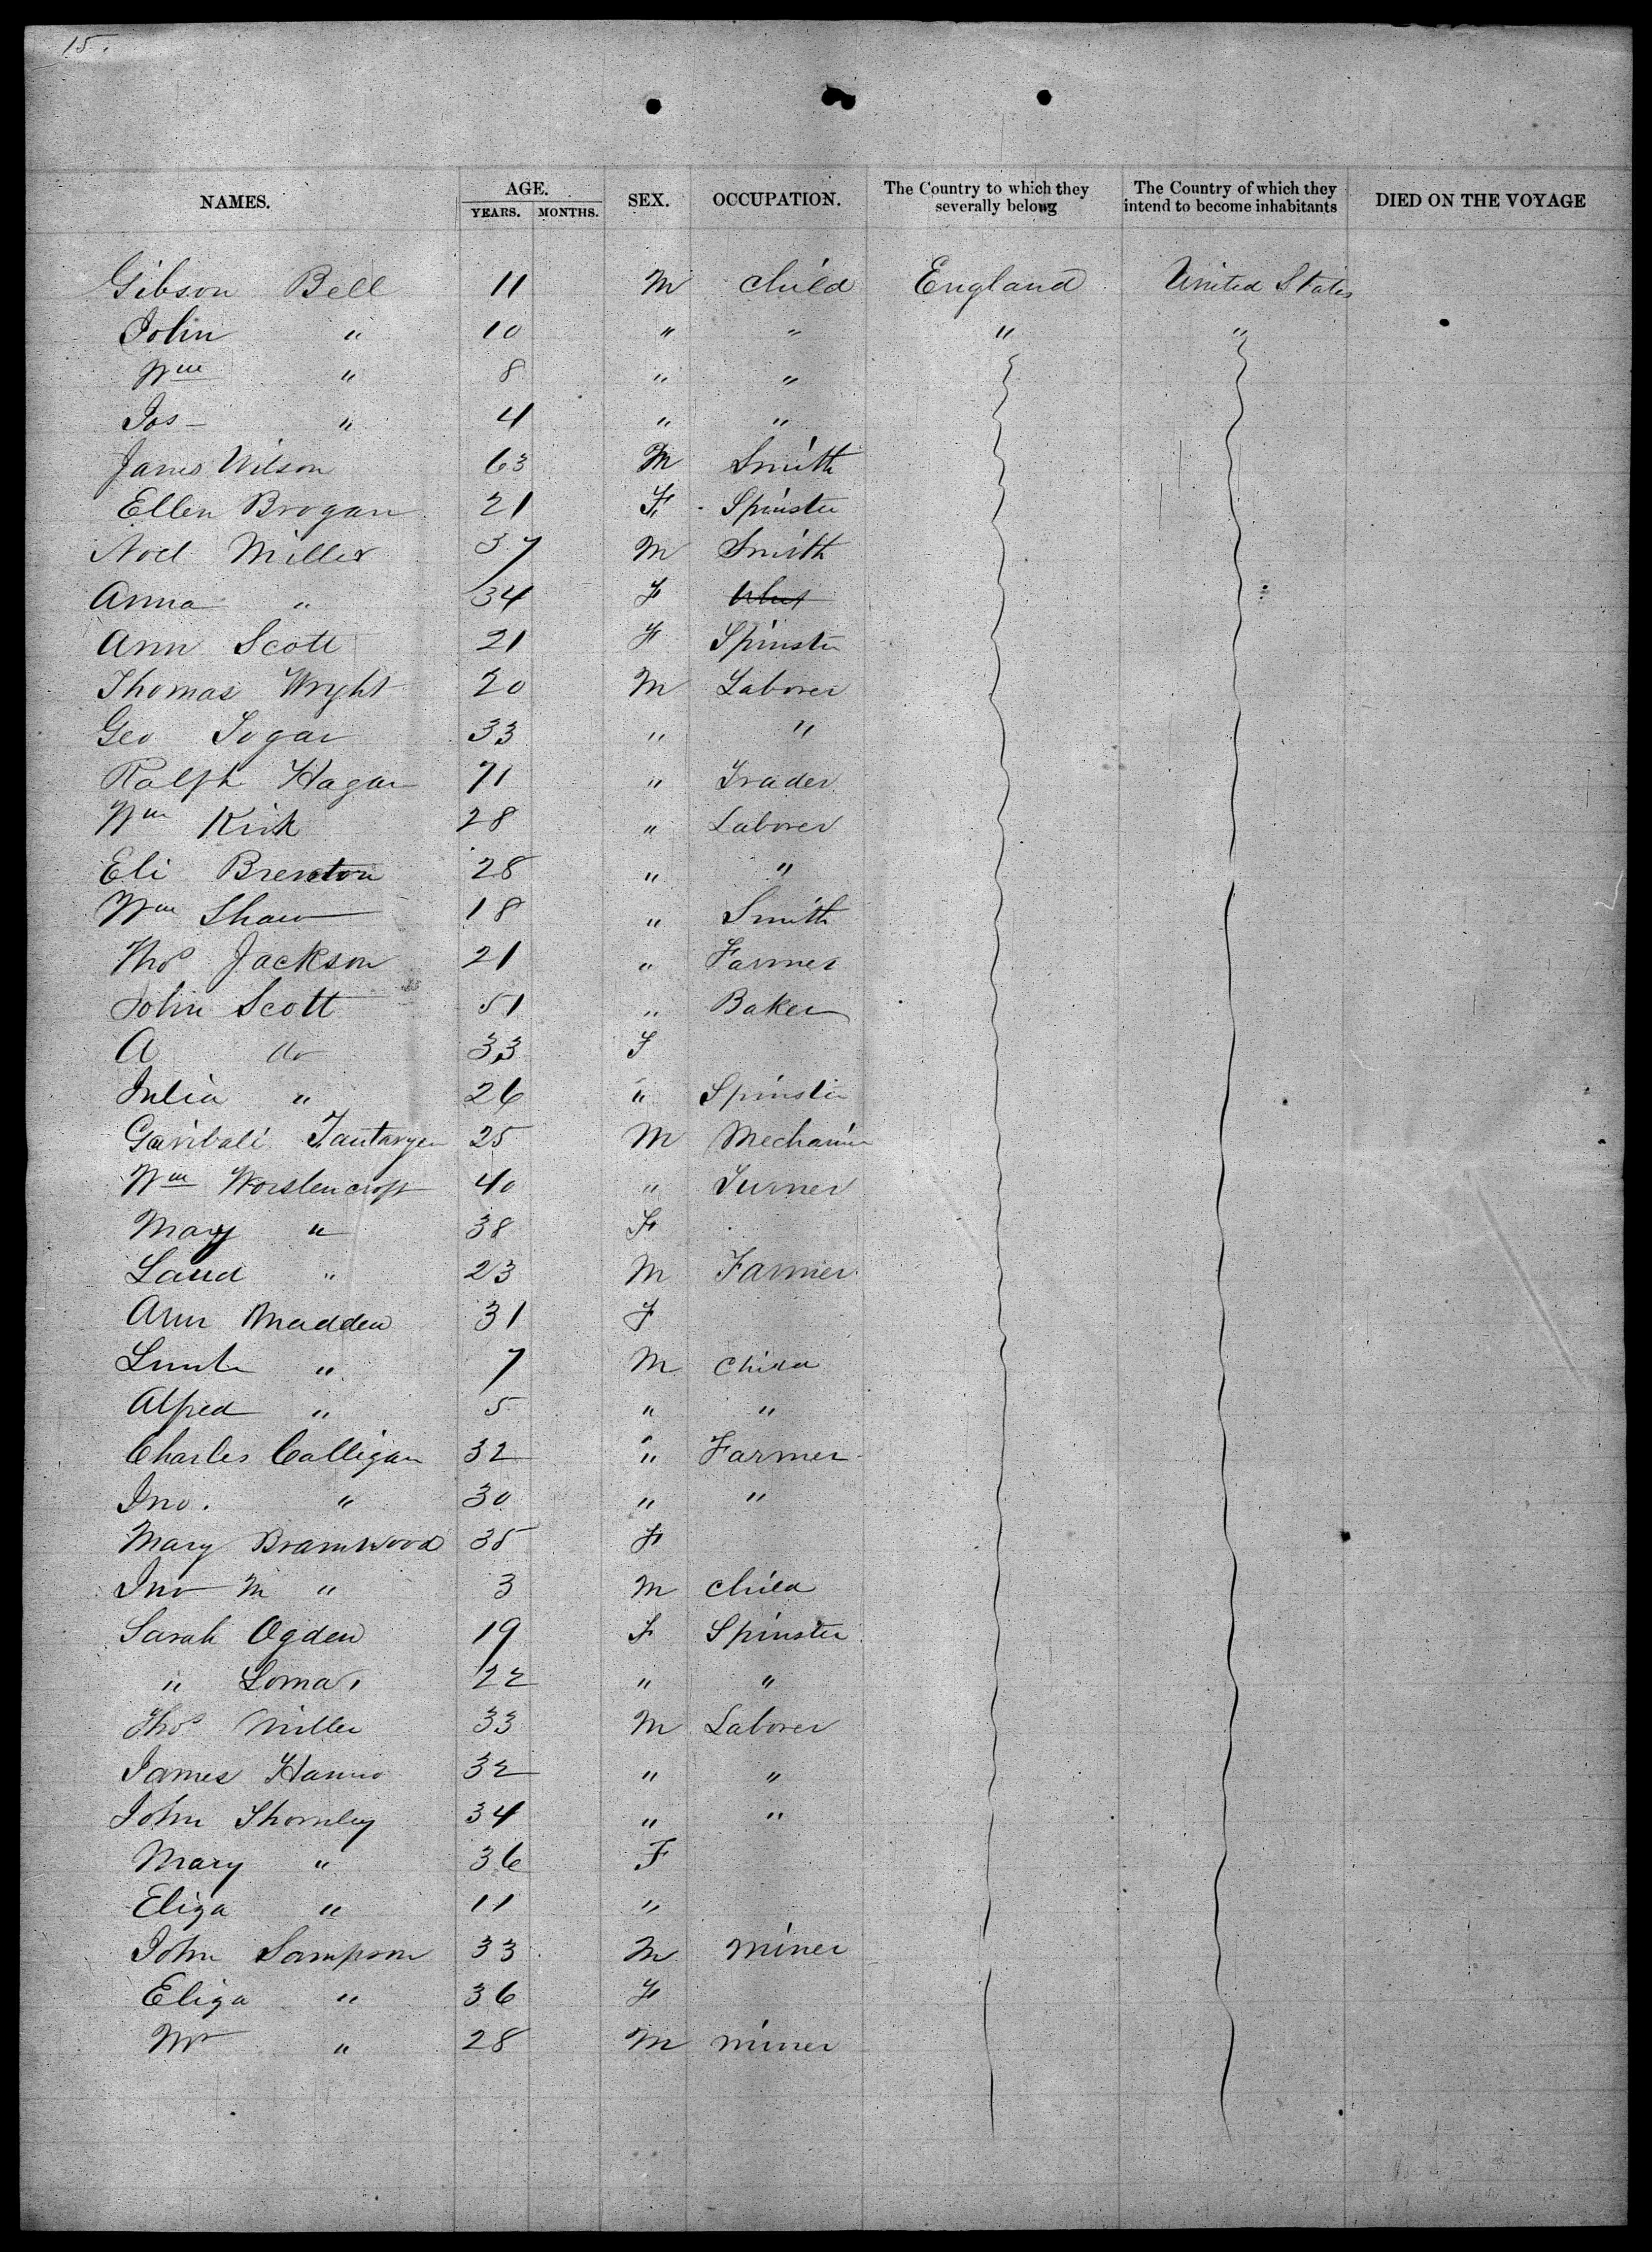 15.
NAMES. AGE. YEARS. MONTHS. SEX. OCCUPATION. The Country to which they severally belong The Country of which they intend to become inhabitants DIED ON THE VOYAGE
Gibson Bell 11 M Child England United States
John " 10 " " " "
Wm " 8 " "
Jos - " 4 " "
James Wilson 63 M Smith
Ellen Brogan 21 F Spinster
Noel Miller 37 M Smith
Anna " 34 F
Ann Scott 21 F Spinster
Thomas Wryht 20 M Laborer
Geo 33 " "
Ralph Hagan 71 " Trader
Wm Kirk 28 " Laborer
Eli Brenton 28 " "
Wm Shaw 18 " Smith
Thos Jackson 21 " Farmer
John Scott 51 " Baker
A do 33 F
Julia " 26 " Spinster
Garibali 25 M Mechanic
Wm Worslencroft 40 " Turner
Mary " 38 F
23 M Farmer
Ann Madden 31 F
" 7 M Child
Alfred " 5 " "
Charles Calligan 32 " Farmer
Jno. " 30 " "
Mary Bramwood 35 F
Jno M " 3 M Child
Sarah Ogden 19 F Spinster
" 22 " "
Thos Miller 33 M Laborer
James 32 " "
John Thornley 34 " "
Mary " 36 F
Eliza " 11 "
John Sampson 33 M Miner
Eliza " 36 F
" 28 M Miner